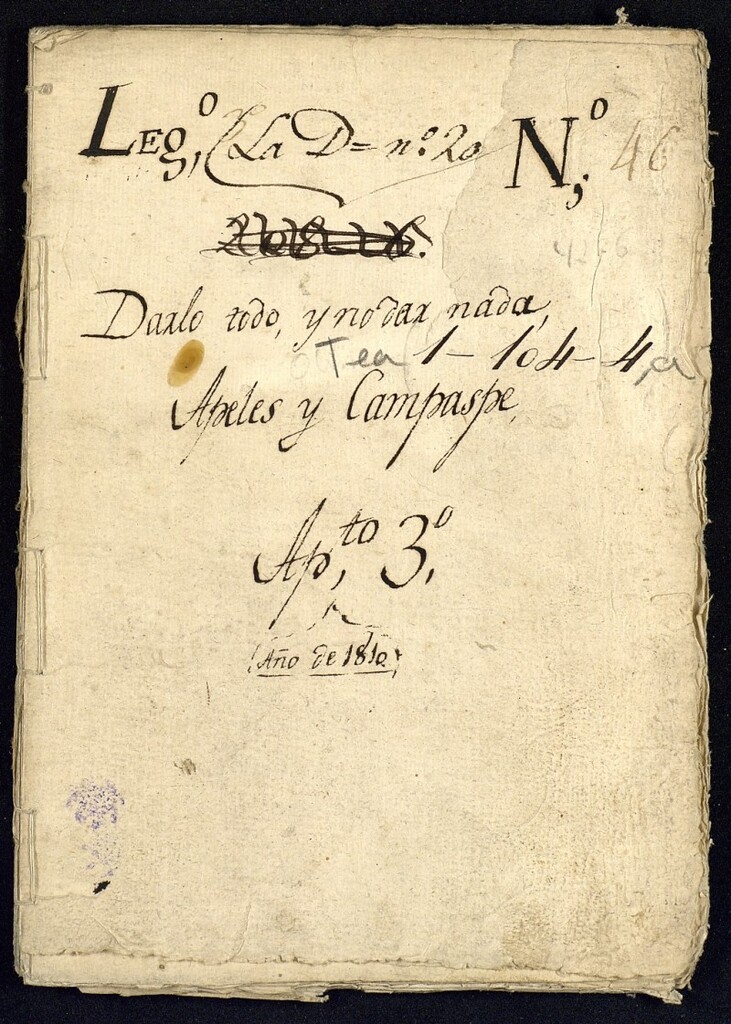 Leg,º La D= nº. 20 N;º 46
Darlo todo, y no dar nada,
Tea 1-104-4,a
Apeles y Campaspe,
Ap,to 3.º
(Año de 1810)